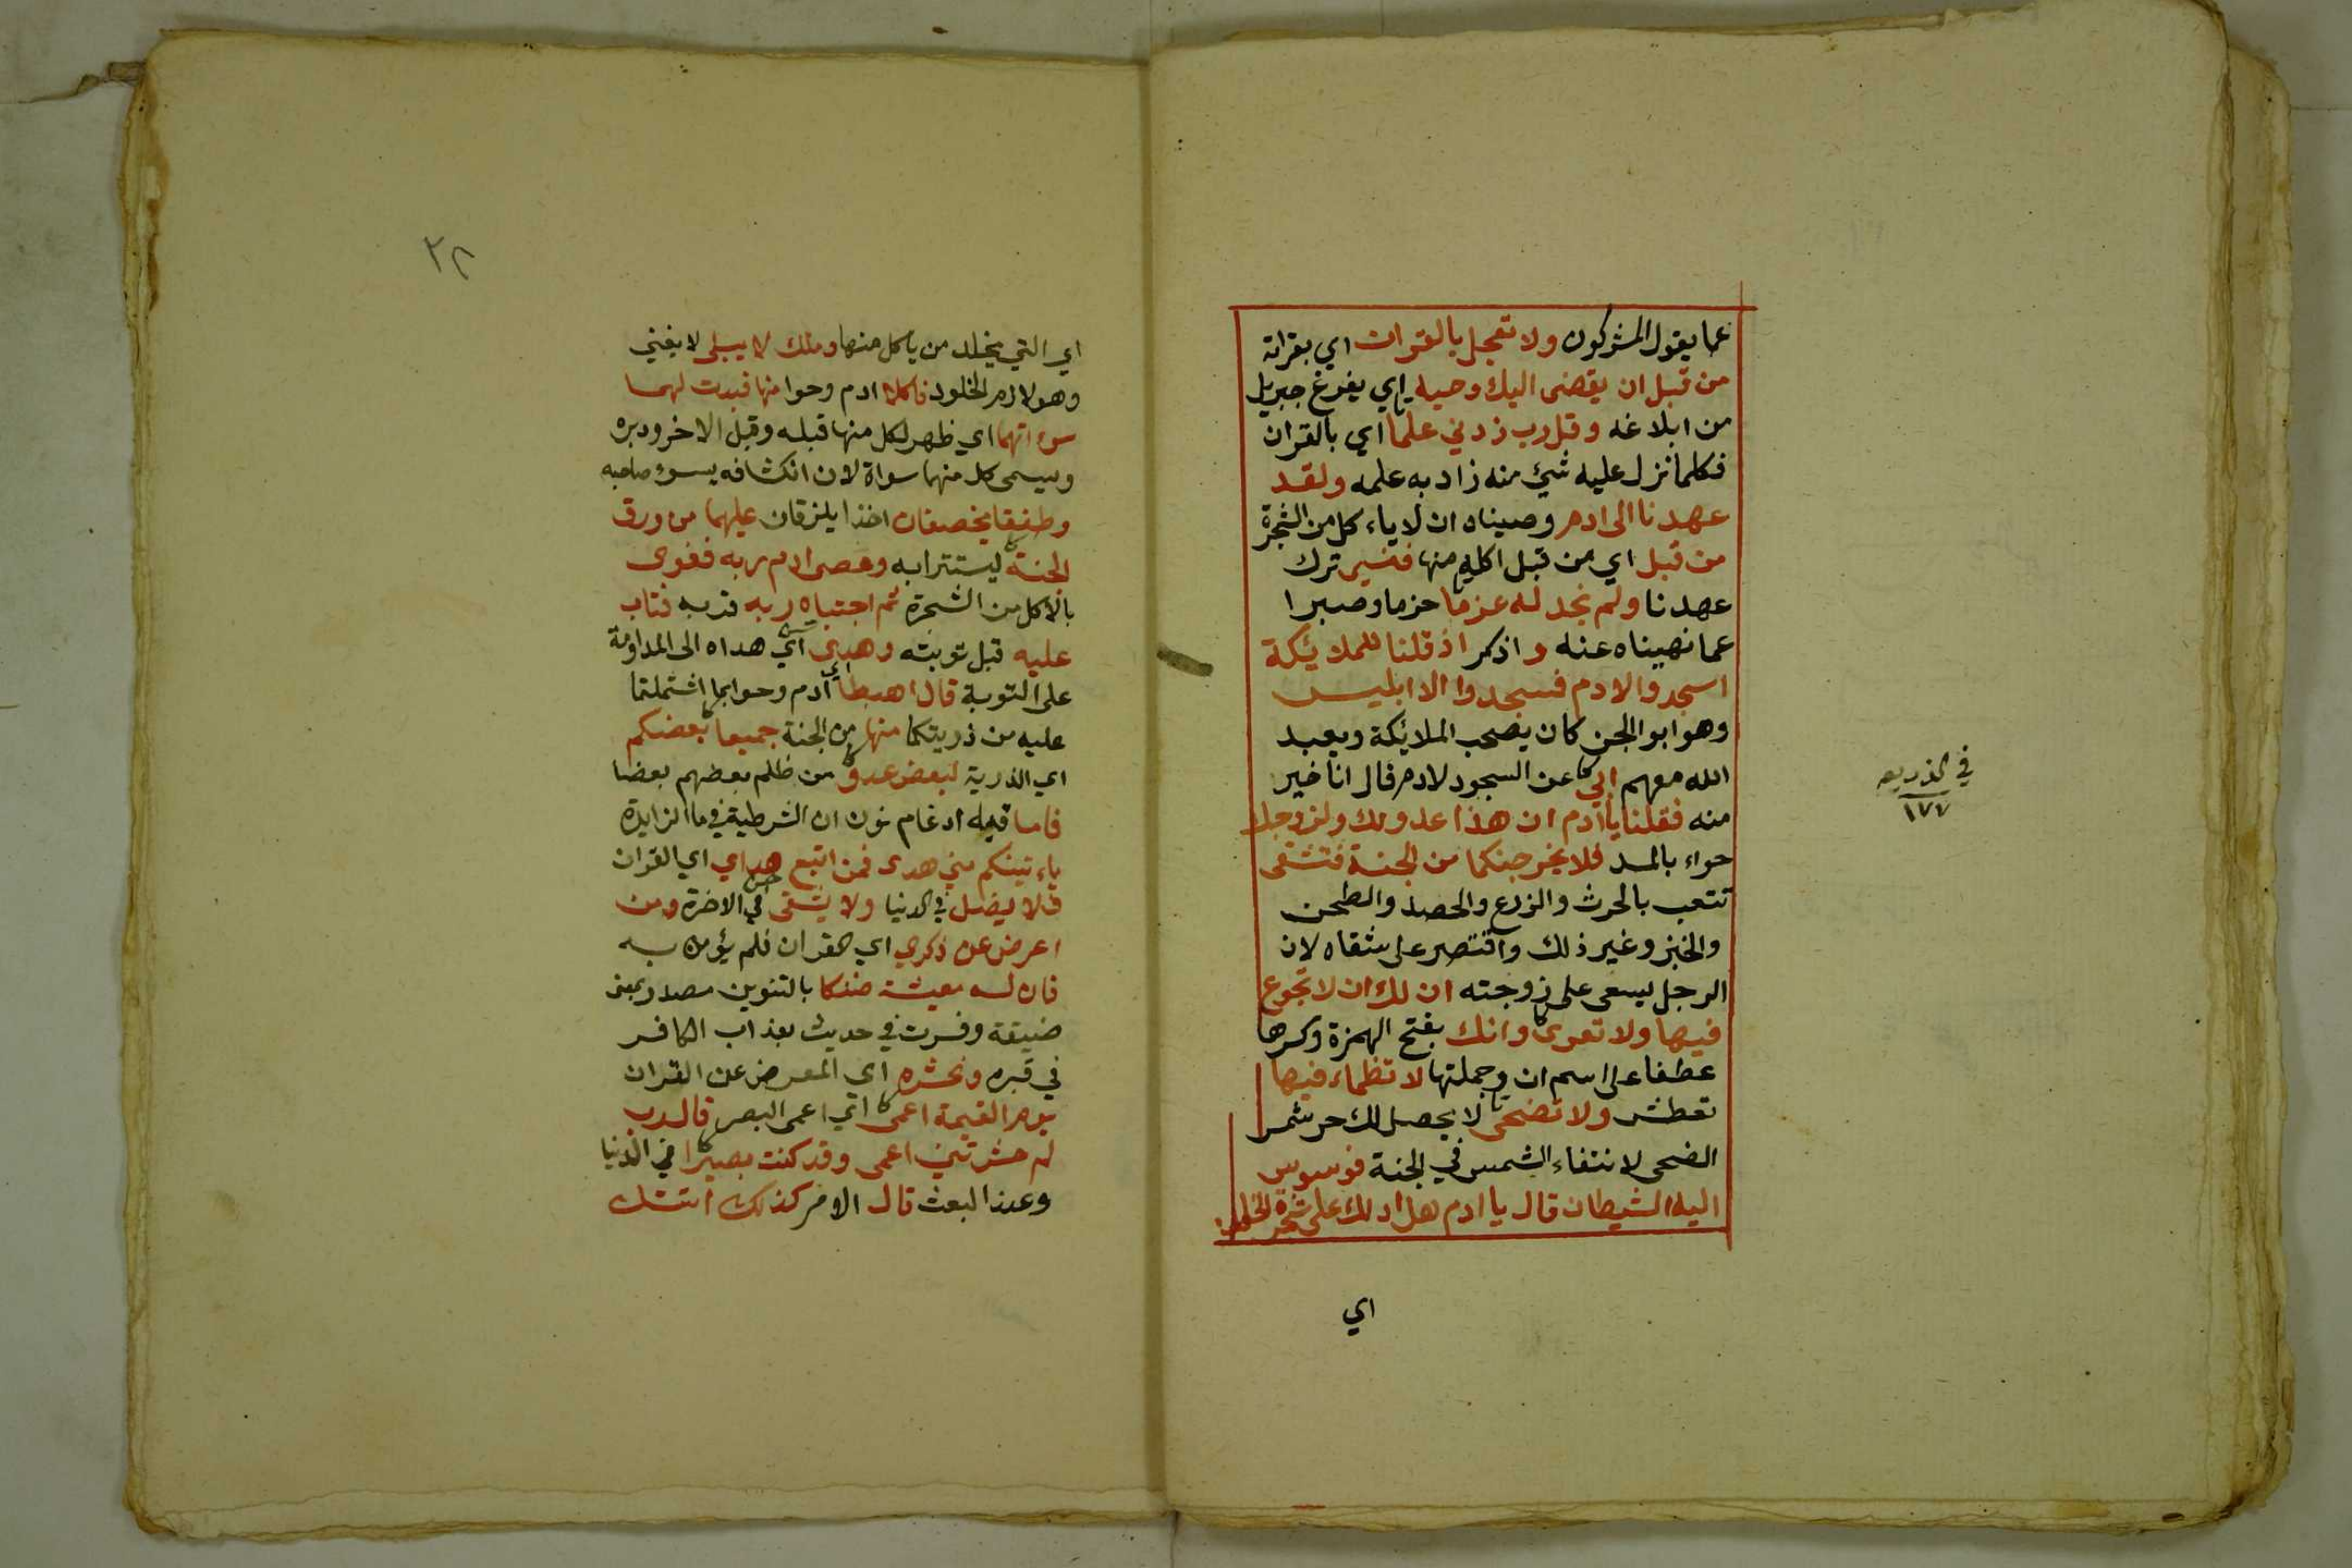 عما يقول المشركون ولا تعجل بالقران اي بقراته
من قبل ان يقضى اليك وحيه اي يفرغ جبريل
من ابلاغه وقل رب زدني علما اي بالقران
فكلما نزل عليه شيء منه زاد به علمه ولقد
عهدنا الى ادم وصيناه ان لا ياء كل من الشجرة
من قبل اي من قبل اكله منها فنسي ترك
عهدنا ولم نجد له عزما حزما وصبرا
عما نهيناه عنه و اذكر اذ قلنا للملائكة
اسجدوا لادم فسجدوا الا ابليس
وهو ابو الجن كان يصحب الملائكة ويعبد
الله معهم ابى عن السجود لادم قال انا خير
منه فقلنا يا ادم ان هذا عدو لك ولزوجك
حواء بالمد فلا يخرجنكما من الجنة فتشقى
تتعب بالحرث والزرع والحصد والطحن
والخبز وغير ذلك واقتصر على شقاه لان
الرجل يسعى على زوجته ان لك ان لا تجوع
فيها ولا تعرى وانك بفتح الهمزة وكسرها
عطفا على اسم ان وجملتها لا تظماء فيها
تعطش ولا تضحى لا يحصل لك حر شمس
الضحى لانتفاء الشمس في الجنة فوسوس
اليه الشيطان قال يا ادم هل ادلك على شجرة الخلد
اي
في الذريعه
١٧٧
٢٢
اي التي يخلد من ياكل منها وملك لا يبلى لا يفني
وهو لازم الخلود فاكلا ادم وحوا منها فبدت لهما
سوءاتهما اي ظهر لكل منها قبله وقبل الاخر ودبره
وسمي كل منهما سواة لان انكشافه يسوء صاحبه
وطفقا يخصفان اخذا يلزقان عليهما من ورق
الجنة ليستترا به وعصى ادم ربه فغوى
بالاكل من الشجرة ثم اجتباه ربه قربه فتاب
عليه قبل توبته وهدى اي هداه الى المداومة
على التوبة قال اهبطا اي ادم وحوا بما اشتملتما
عليه من ذريتكما منها من الجنة جميعا بعضكم
اي الذرية لبعض عدو من ظلم بعضهم بعضا
فاما فيه ادغام نون ان الشرطية في ما الزايدة
ياء تينكم مني هدى فمن اتبع هداي اي القران
فلا يضل في الدنيا ولا يشقى في الاخرة ومن
اعرض عن ذكري اي القران فلم يؤمن به
فان له معيشة ضنكا بالتنوين مصدر بمعنى
ضيقة وفسرت في حديث بعذاب الكافر
في قبره ونحشره اي المعرض عن القران
يوم القيمة اعمى اي اعمى البصر قال رب
لم حشرتني اعمى وقد كنت بصيرا في الدنيا
وعند البعث قال الامر كذلك اتتك